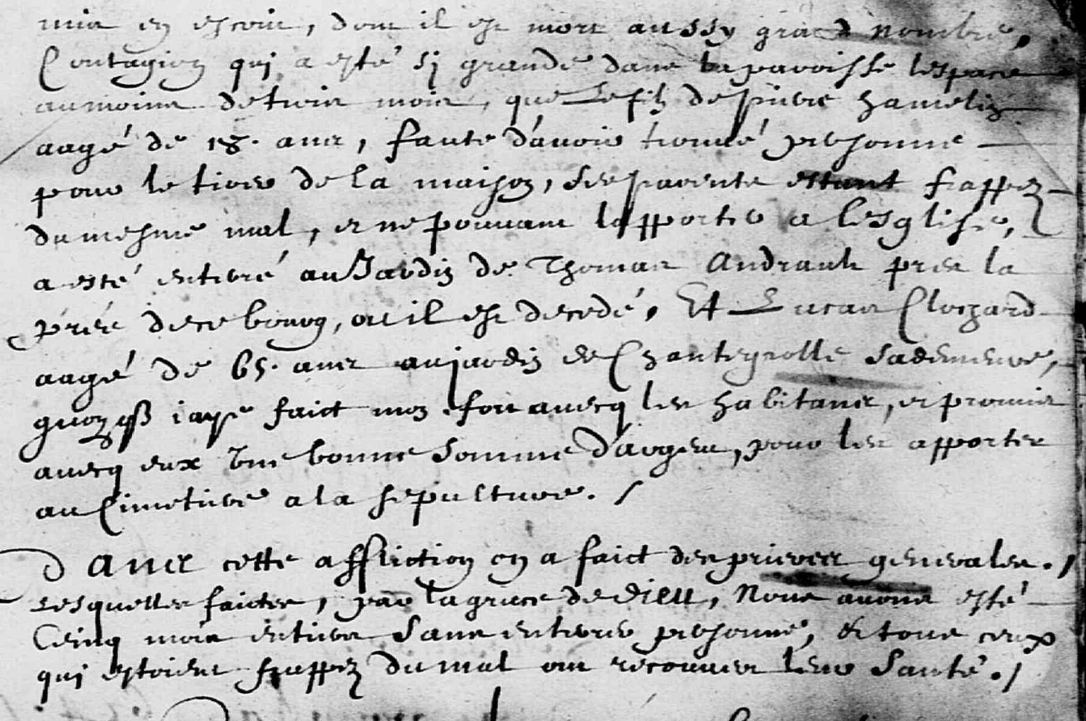 mis en escrit, dont il est mort aussy grand nombre,
Contagion qui a esté si grande dans la paroisse lespace
au moins de trois mois, que Le filz de pierre hamelin
aagé de 18. ans, faute d'avoir trouvé personne
pour le tirer de la maison, ses parents estant frappez
du mesme mal, et ne pouvant l'apporter a l'esglise,
a esté enterré au Jardin de Thomas Andrault pres la
prée de ce bourg, ou il est decedé. Et Lucas Clochard
aagé de 65. ans au jardin de Chantegrolle sa demeure,
quoyque j'aye faict mon effort avecq les habitans, et promis
avecq eux Une bonne somme d'argent, pour les apporter
au Cimetiere a la sepulture. /
Dans cette affliction on a faict des prieres generales. /
Lesquelles faictes, par la grace de Dieu, Nous avons esté
Cinq mois entiers sans enterrer personne, Et tous ceux
qui estoient frappez du mal ont recouvert leur santé. /